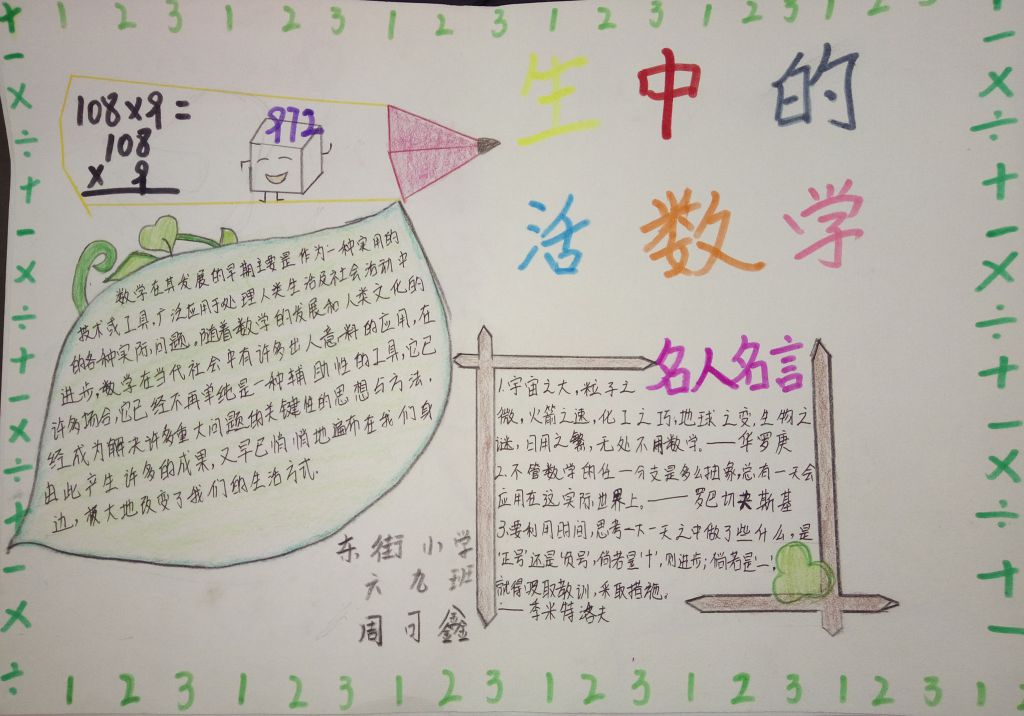 + 1 2 3 1 2 3 1 2 3 1 2 3 1 2 3 1 2 3
生 中 的
活 数 学
108×9=
108
× 9
972
数学在其发展的早期主要是作为一种实用的
技术或工具,广泛应用于处理人类生活及社会活动中
的各种实际问题。随着数学的发展和人类文化的
进步,数学在当代社会中有许多出人意料的应用,在
许多场合,它已经不再单纯是一种辅助性的工具,它已
经成为解决许多重大问题的关键性的思想与方法,
由此产生许多的成果,又早已悄悄地遍布在我们身
边,极大地改变了我们的生活方式.
名人名言
1.宇宙之大,粒子之
微,火箭之速,化工之巧,地球之变,生物之
谜,日用之繁,无处不用数学。——华罗庚
2.不管数学的任一分支是多么抽象,总有一天会
应用在这实际世界上。——罗巴切夫斯基
3.要利用时间,思考一下一天之中做了些什么,是
'正号'还是'负号',倘若是'+',则进步;倘若是'一',
就得吸取教训,采取措施。
——季米特洛夫
东街小学
六九班
周可鑫
1 2 3 1 2 3 1 2 3 1 2 3 1 2 3 1 2 3 1